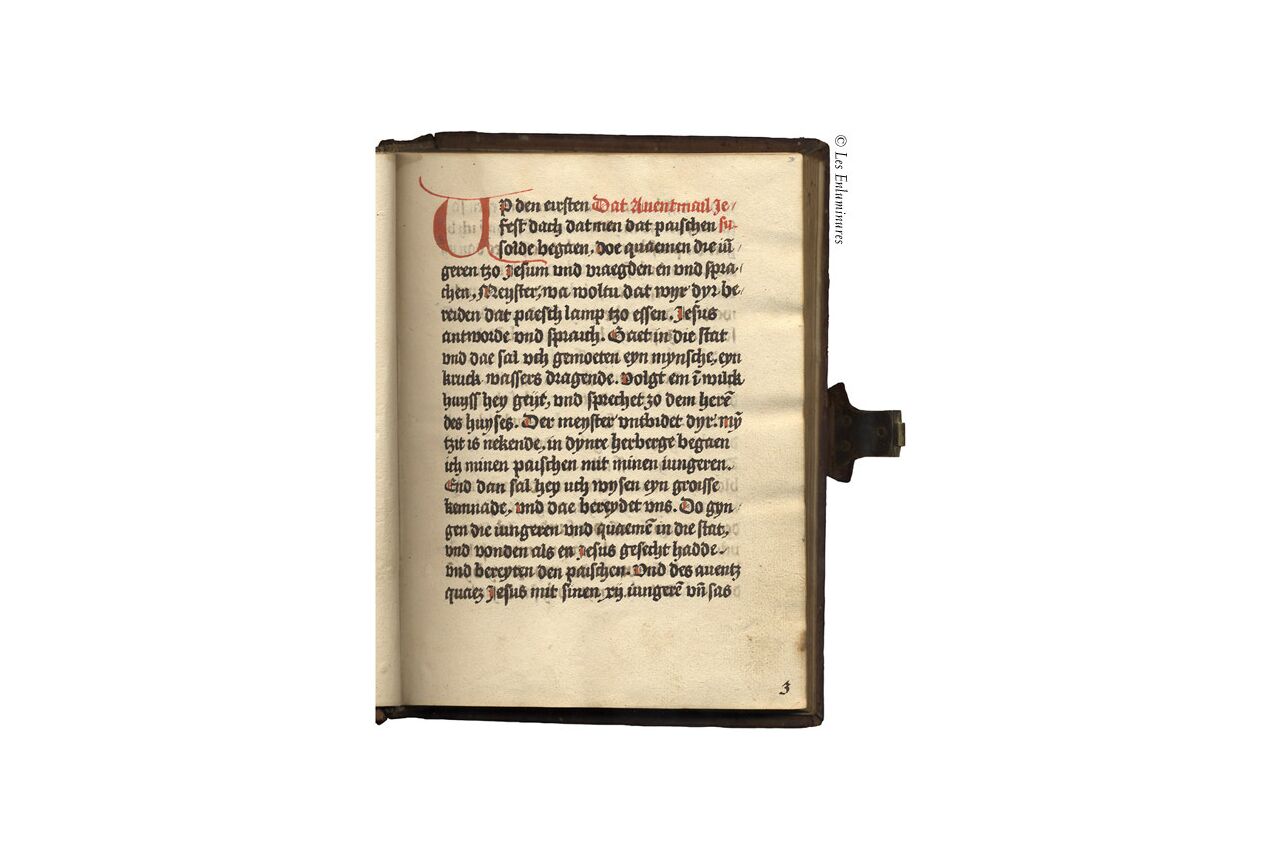 Vp den eirsten Dat Auentmail Je
fest dach datmen dat paischen su
solde begaen, doe quaemen die iū
geren tzo Jesum vnd vraegden en vnd spra
chen, Meyster, wa woltu dat wyr dyr be
reiden dat paesch lamp tzo essen. Jesus
antworde vnd sprach. Gaet in die stat
vnd dae sal vch gemoeten eyn mynsche, eyn
kruck wassers dragende. volgt em ī wilch
huyss hey geijt, vnd sprechet zo dem herē
des huyses. Der meyster vntbidet dyr. mȳ
tzit is nekende, in dynre herberge begaen
ich minen paischen mit minen iungeren.
End dan sal hey uch wysen eyn groisse
kemnade, vnd dae bereydet vns. Do gyn
gen die iungeren vnd quaemē in die stat,
vnd vonden als en Jesus gesecht hadde.
vnd bereyten den paischen. Vnd des auentz
quaez Jesus mit sinen xij iungerē vn̄ sas
3
© Les Enluminures